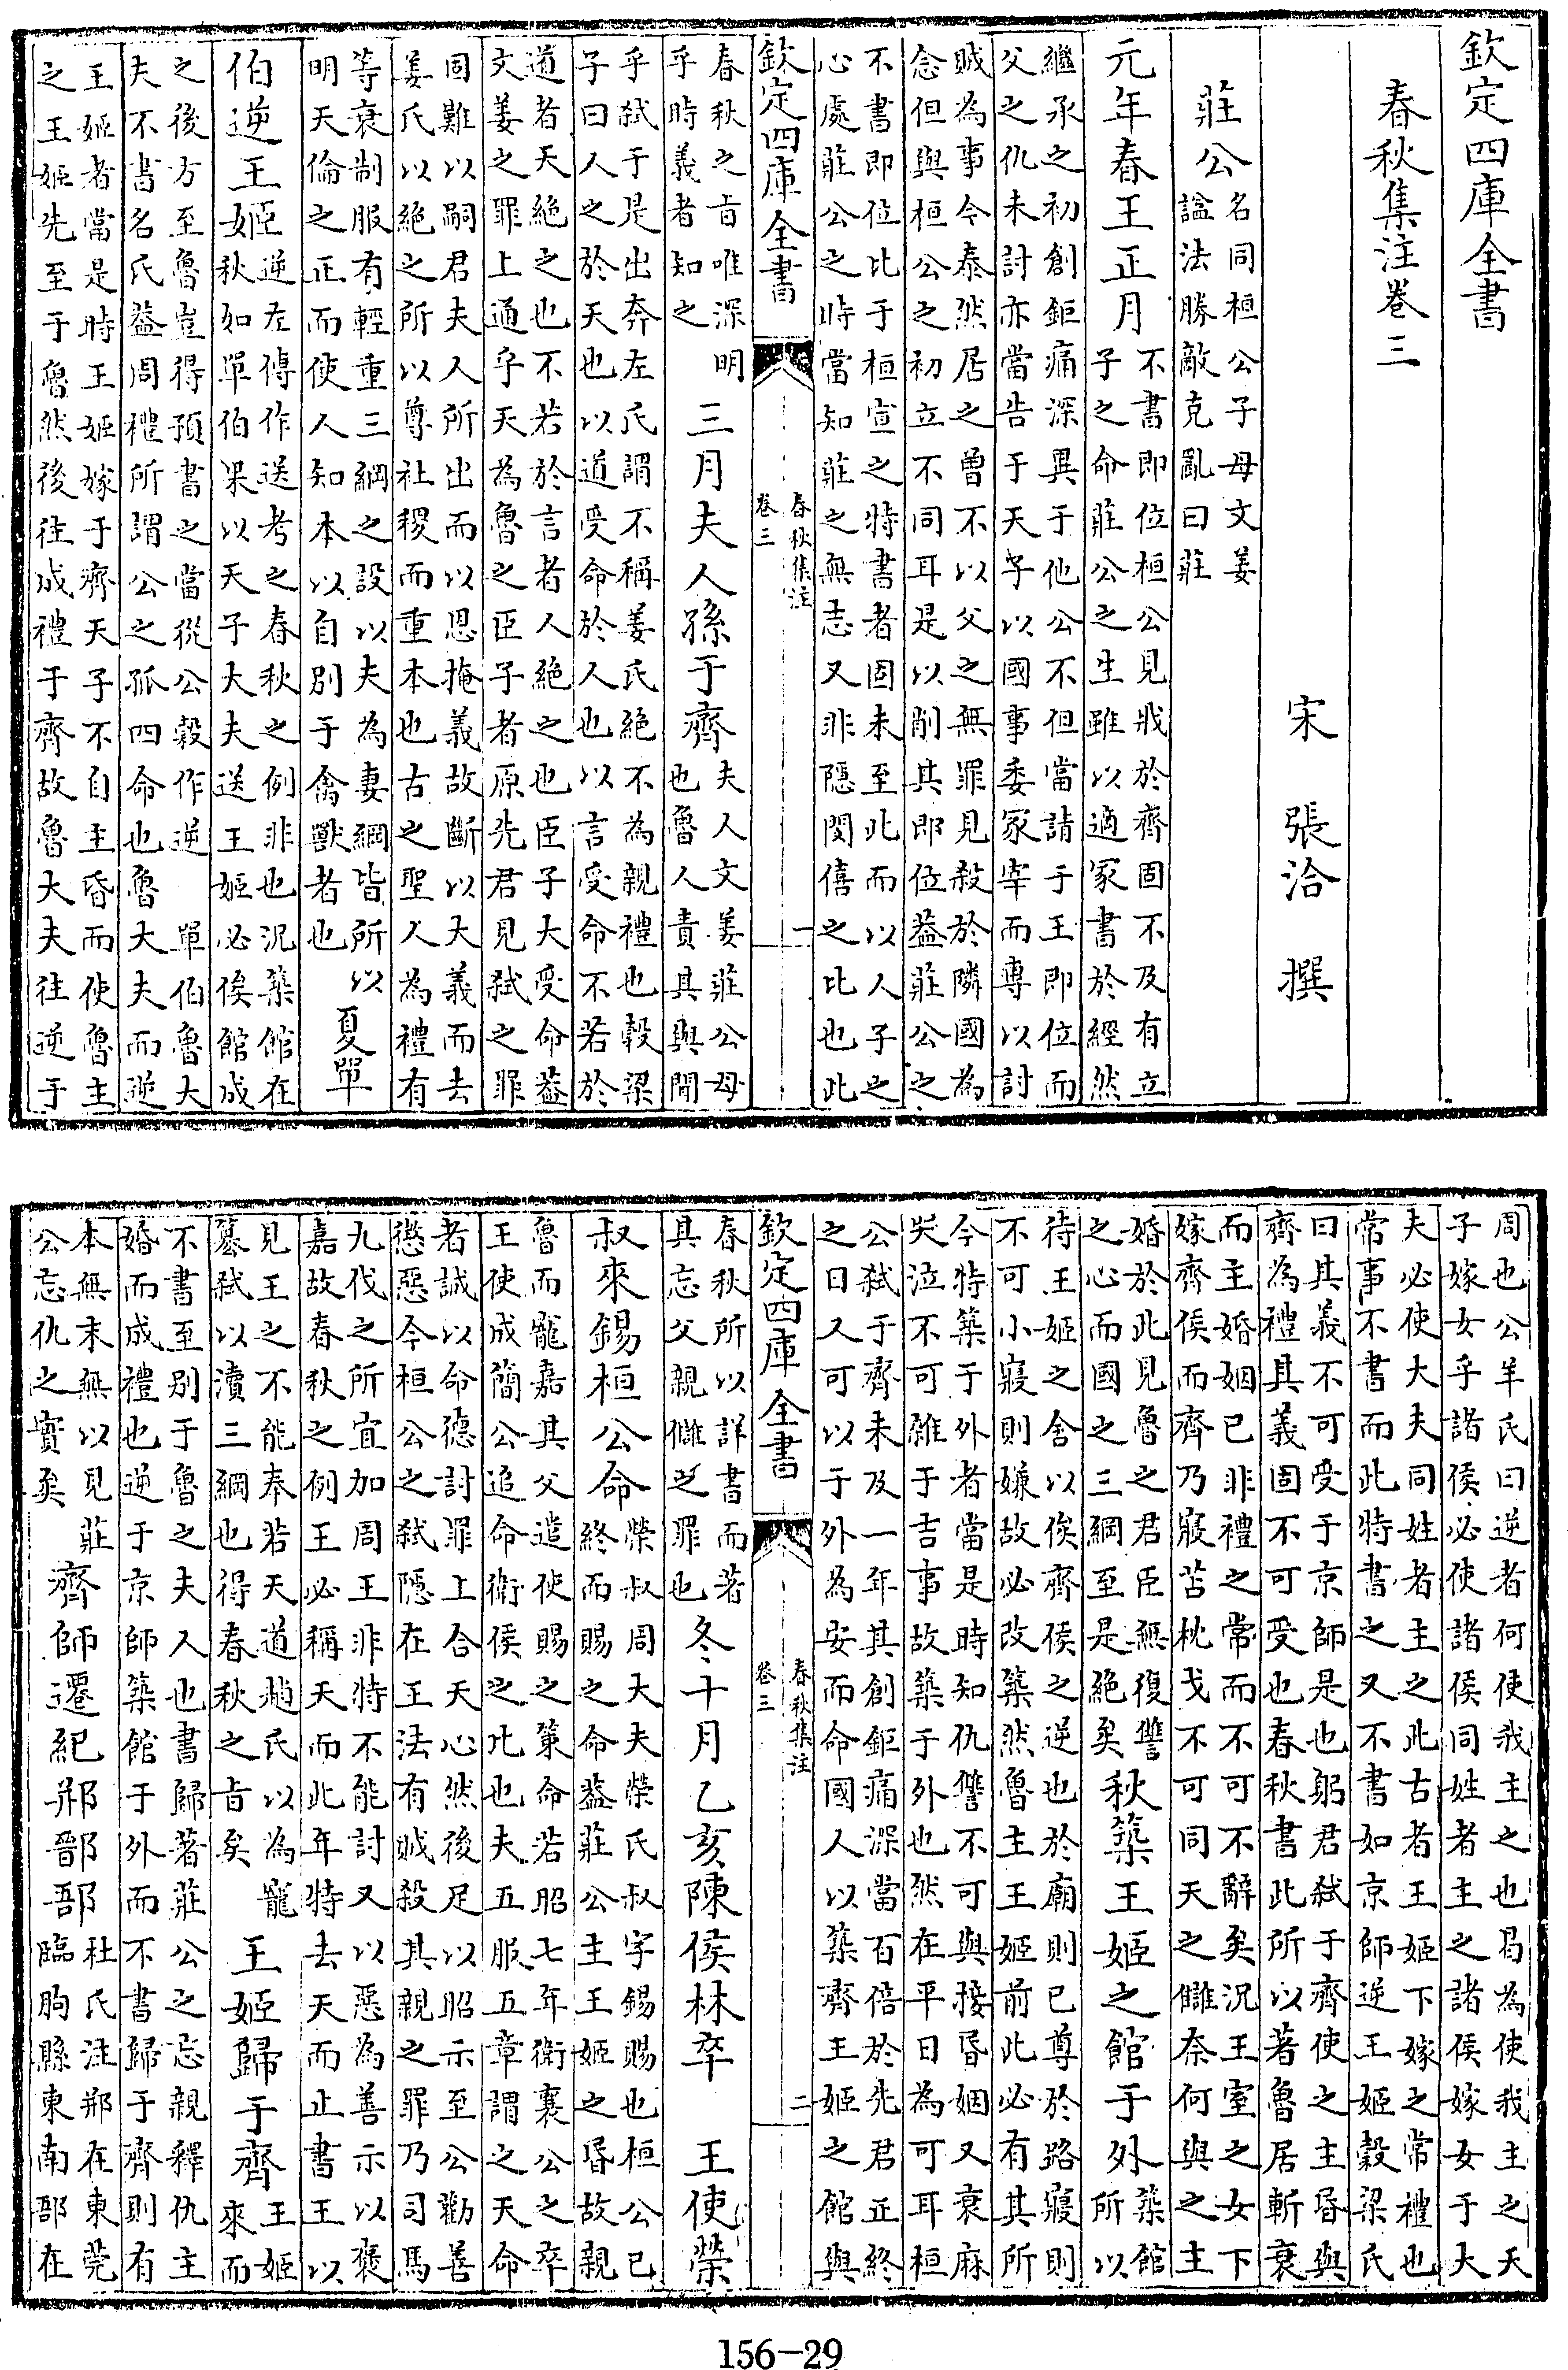 欽定四庫全書
春秋集注卷三
宋 張洽 撰
莊公
名同桓公子母文姜
諡法勝敵克亂曰莊
元年春王正月
不書即位桓公見戕於齊固不及有立
子之命莊公之生雖以適冡書於經然
繼承之初創鉅痛深異于他公不但當請于王即位而
父之仇未討亦當告于天子以國事委冡宰而專以討
賊為事今泰然居之曽不以父之無罪見殺於隣國為
念但與桓公之初立不同耳是以削其即位葢莊公之
不書即位比于桓宣之特書者固未至此而以人子之
心處莊公之時當知莊之無志又非隱閔僖之比也此
欽定四庫全書
春秋集注
卷三
一
春秋之㫖唯深明
乎時義者知之
三月夫人孫于齊
夫人文姜莊公母
也魯人責其與聞
乎弑于是出奔左氏謂不稱姜氏絶不為親禮也穀梁
子曰人之於天也以道受命於人也以言受命不若於
道者天絶之也不若於言者人絶之也臣子大受命葢
文姜之罪上通乎天為魯之臣子者原先君見弑之罪
同難以嗣君夫人所出而以恩掩義故斷以大義而去
姜氏以絶之所以尊社稷而重本也古之聖人為禮有
等衰制服有輕重三綱之設以夫為妻綱皆所以
明天倫之正而使人知本以自别于禽獸者也
夏單
伯逆王姬
逆左傳作送考之春秋之例非也況築館在
秋如單伯果以天子大夫送王姬必俟館成
之後方至魯豈得預書之當從公穀作逆 單伯魯大
夫不書名氏葢周禮所謂公之孤四命也魯大夫而逆
王姬者當是時王姬嫁于齊天子不自主昏而使魯主
之王姬先至于魯然後往成禮于齊故魯大夫往逆于
周也公羊氏曰逆者何使我主之也曷為使我主之天
子嫁女乎諸侯必使諸侯同姓者主之諸侯嫁女于大
夫必使大夫同姓者主之此古者王姬下嫁之常禮也
常事不書而此特書之又不書如京師逆王姬穀梁氏
曰其義不可受于京師是也躬君弑于齊使之主昏與
齊為禮其義固不可受也春秋書此所以著魯居斬衰
而主婚姻已非禮之常而不可不辭矣況王室之女下
嫁齊侯而齊乃寢苫枕戈不可同天之讎奈何與之主
婚於此見魯之君臣無復讐
之心而國之三綱至是絶矣
秋築王姬之館于外
築館
所以
待王姬之舍以俟齊侯之逆也於廟則已尊於路寢則
不可小寢則嫌故必改築然魯主王姬前此必有其所
今特築于外者當是時知仇讐不可與接昏姻又衰麻
哭泣不可雜于吉事故築于外也然在平日為可耳桓
公弑于齊未及一年其創鉅痛深當百倍於先君正終
之日人可以于外為安而命國人以築齊王姬之館與
欽定四庫全書
春秋集注
卷三
二
春秋所以詳書而著
其忘父親讎之罪也
冬十月乙亥陳侯林卒 王使榮
叔來錫桓公命
榮叔周大夫榮氏叔字錫賜也桓公已
終而賜之命葢莊公主王姬之昏故親
魯而寵嘉其父遣使賜之策命若昭七年衛襄公之卒
王使成簡公追命衛侯之比也夫五服五章謂之天命
者誠以命德討罪上合天心然後足以昭示至公勸善
懲惡今桓公之弑隱在王法有賊殺其親之罪乃司馬
九伐之所宜加周王非特不能討又以惡為善示以褒
嘉故春秋之例王必稱天而此年特去天而止書王以
見王之不能奉若天道趙氏以為寵
簒弑以瀆三綱也得春秋之㫖矣
王姬歸于齊
王姬
來而
不書至别于魯之夫人也書歸著莊公之忘親釋仇主
婚而成禮也逆于京師築館于外而不書歸于齊則有
本無末無以見莊
公忘仇之實矣
齊師遷紀郱鄑郚
杜氏注郱在東莞
臨朐縣東南郚在
156-29